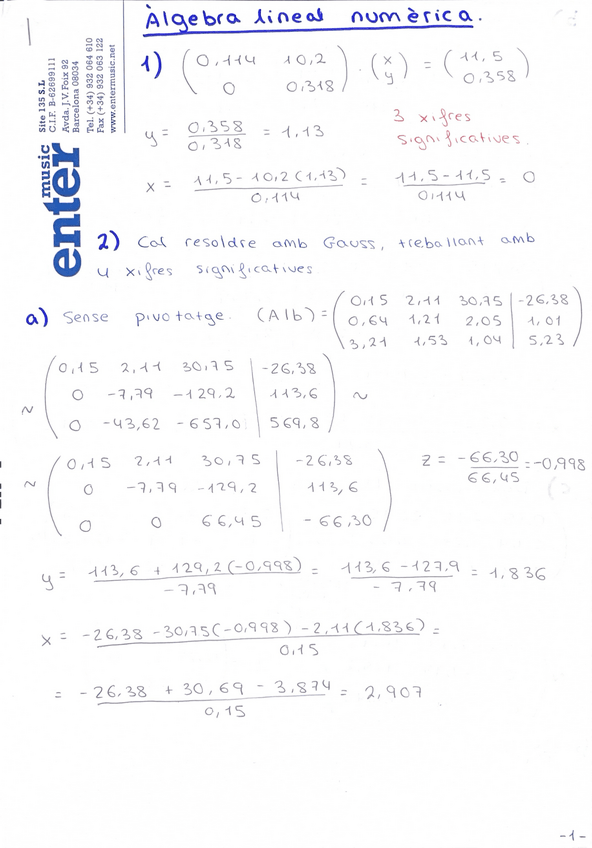 Àlgebra lineal numèrica.
enter music
Site 135 S.L
C.I.F. B-62699111
Avda. J. V. Foix 92
Barcelona 08034
Tel. (+34) 932 064 610
Fax (+34) 932 063 122
www.entermusic.net
1) (0,114 10,2 / 0 0,318) · (x / y) = (11,5 / 0,358)
y = 0,358 / 0,318 = 1,13
3 xifres significatives.
x = 11,5 - 10,2(1,13) / 0,114 = 11,5 - 11,5 / 0,114 = 0
2) Cal resoldre amb Gauss, treballant amb
4 xifres significatives
a) Sense pivotatge. (A|b) = (0,15 2,11 30,75 | -26,38
0,64 1,21 2,05 | 1,01
3,21 1,53 1,04 | 5,23)
~ (0,15 2,11 30,75 | -26,38
0 -7,79 -129,2 | 113,6
0 -43,62 -657,0 | 569,8) ~
~ (0,15 2,11 30,75 | -26,38
0 -7,79 -129,2 | 113,6
0 0 66,45 | -66,30)
z = -66,30 / 66,45 = -0,998
y = 113,6 + 129,2(-0,998) / -7,79 = 113,6 - 127,9 / -7,79 = 1,836
x = -26,38 - 30,75(-0,998) - 2,11(1,836) / 0,15 =
= -26,38 + 30,69 - 3,874 / 0,15 = 2,907
-1-